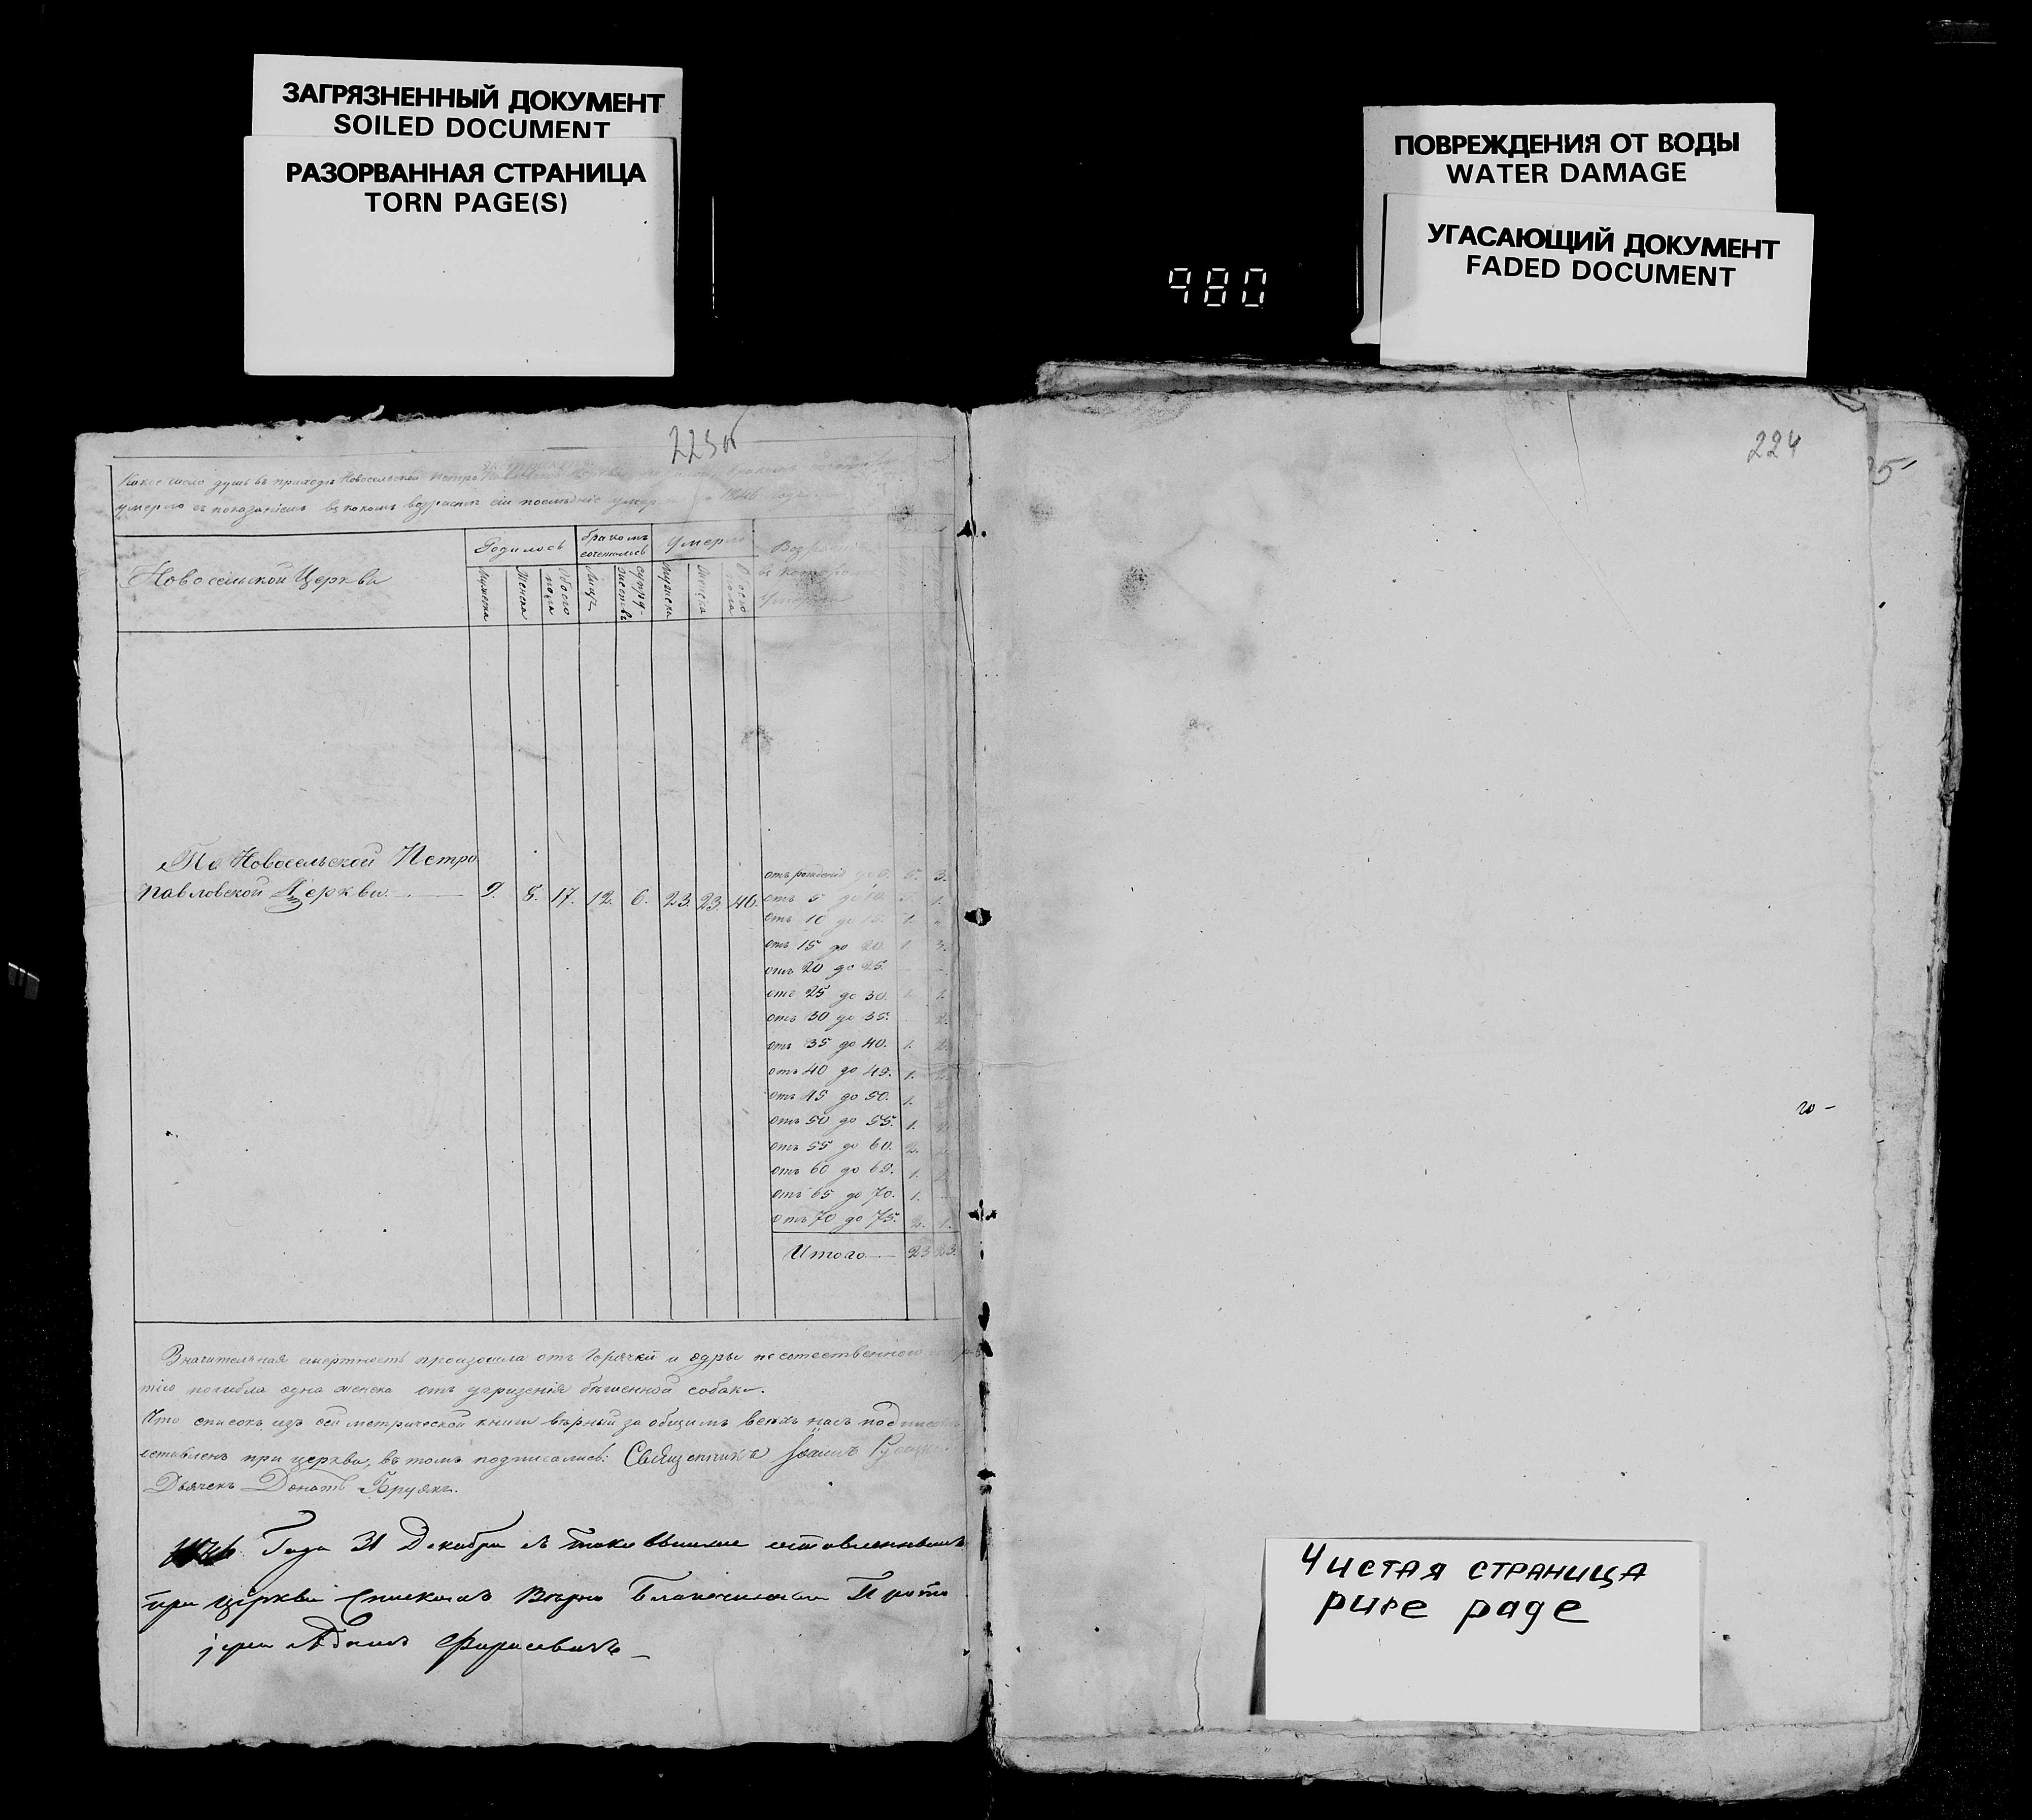 ЗАГРЯЗНЕННЫЙ ДОКУМЕНТ
SOILED DOCUMENT
РАЗОРВАННАЯ СТРАНИЦА
TORN PAGE(S)
ПОВРЕЖДЕНИЯ ОТ ВОДЫ
WATER DAMAGE
УГАСАЮЩИЙ ДОКУМЕНТ
FADED DOCUMENT
980
Какое число душъ въ приходѣ Новосельской Петро
умерло съ показаніемъ въ какомъ возрастѣ сіи послѣдніе 1846 года
Новосельской Церкви
Родилось
бракомъ сочеталось
Умерло
Мужеска Женска Обоего пола Лицъ супружествъ Мужеска Женска Обоего пола
По Новосельской Петро
Павловской Церкви. 9. 8. 17. 12. 6. 23. 23. 46.
отъ рожденія до 5. 3.
отъ 5 до 10. 1.
отъ 10 до 15. 1.
отъ 15 до 20. 1. 3.
отъ 20 до 25.
отъ 25 до 30. 1.
отъ 30 до 35. 2.
отъ 35 до 40. 1. 2.
отъ 40 до 45. 1.
отъ 45 до 50. 1.
отъ 50 до 55. 1.
отъ 55 до 60. 2.
отъ 60 до 65. 1.
отъ 65 до 70. 1.
отъ 70 до 75. 2. 1.
Итого 23 23.
Значительная смертность произошла отъ Горячки и
погибла одна женска отъ угризенія бѣшенной собаки.
Что списокъ изъ сей метрической книги вѣрный за общимъ всѣхъ насъ
оставленъ при церкви, въ томъ подписались: Священникъ Іоаннъ
Дьячекъ Донатъ
1846 Года 31 Декабря съ оставленнымъ
при церкви Спискомъ Вѣрно Благочинный Прото
іерей Адамъ
224
Чистая страница
pure page